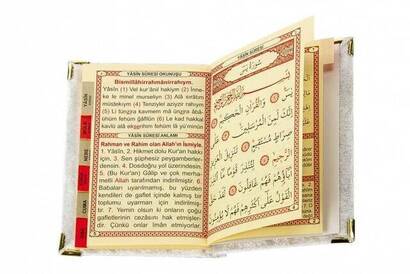 YÂSİN SÛRESİ OKUNUŞU
Bismillâhirrahmânirrahıym.
Yâsîn (1) Vel kur'ânil hakiym (2) İnne-
ke le minel murseliyn (3) Alâ sırâtım
müstekıym (4) Tenziylel aziyzir rahiym
(5) Li tünzira kavmem mâ ünzira âbâü-
hüm fehüm ğâfilûn (6) Le kad hakkal
kavlü alâ ekserihim fehüm lâ yü'minûn
YÂSİN SÛRESİ ANLAMI
Rahman ve Rahim olan Allah'ın İsmiyle.
1. Yâsîn, 2. Hikmet dolu Kur'an hakkı
için, 3. Sen şüphesiz peygamberler-
densin, 4. Dosdoğru yol üzerindesin,
5. (Bu Kur'an) Gâlip ve çok merha-
metli Allah tarafından indirilmiştir. 6.
Babaları uyarılmamış, bu yüzden
kendileri de gaflet içinde kalmış bir
toplumu uyarman için indirilmiş-
tir. 7. Yemin olsun ki onların çoğu
gafletlerinin cezasını hak etmişler-
dir. Çünkü onlar îman etmiyorlar.
YÂSİN
MÜLK
NEBE
CUMA
YÂSİN SÛRESİ
سُورَةُ يٰسٓ
يٰسٓ ﴿١﴾ وَالْقُرْاٰنِ الْحَكِيمِ ﴿٢﴾
اِنَّكَ لَمِنَ الْمُرْسَلِينَ ﴿٣﴾ عَلٰى
صِرَاطٍ مُسْتَقِيمٍ ﴿٤﴾ تَنْزِيلَ الْعَزِيزِ
الرَّحِيمِ ﴿٥﴾ لِتُنْذِرَ قَوْمًا مَا اُنْذِرَ
اٰبَاؤُهُمْ فَهُمْ غَافِلُونَ ﴿٦﴾ لَقَدْ حَقَّ
الْقَوْلُ عَلٰى اَكْثَرِهِمْ فَهُمْ لَا يُؤْمِنُونَ